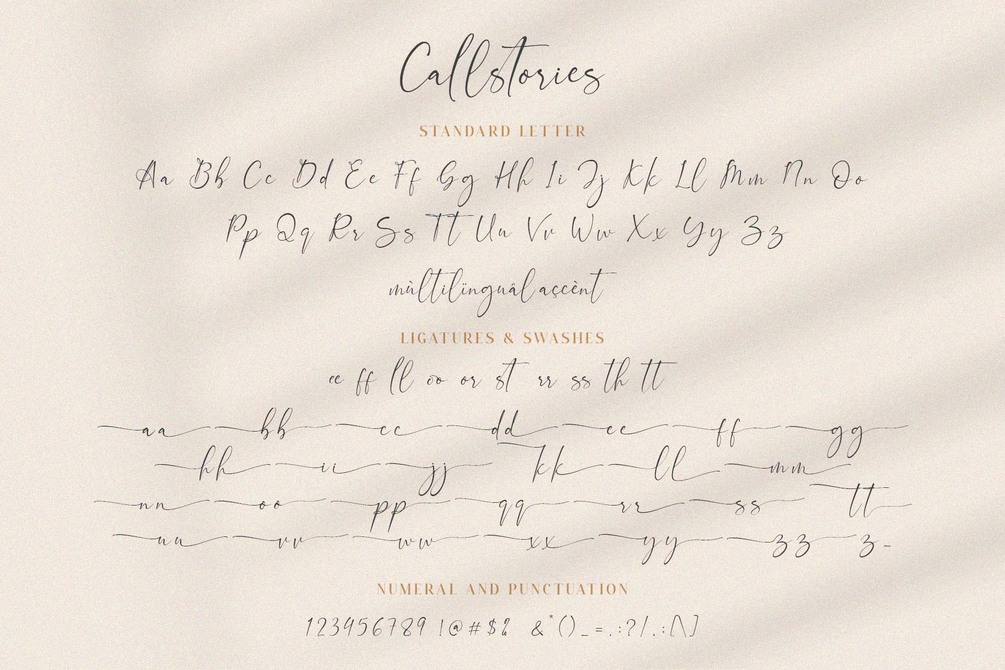 Callstories
STANDARD LETTER
Aa Bb Cc Dd Ee Ff Gg Hh Ii Jj Kk Ll Mm Nn Oo
Pp Qq Rr Ss Tt Uu Vv Ww Xx Yy Zz
mùltilïnguál açcènt
LIGATURES & SWASHES
ee ff ll oo or st rr ss th tt
aa bb cc dd ee ff gg
hh ii jj kk ll mm
nn oo pp qq rr ss tt
uu vv ww xx yy zz z_
NUMERAL AND PUNCTUATION
123456789 !@#$% &*()_=.:?/.:/\]